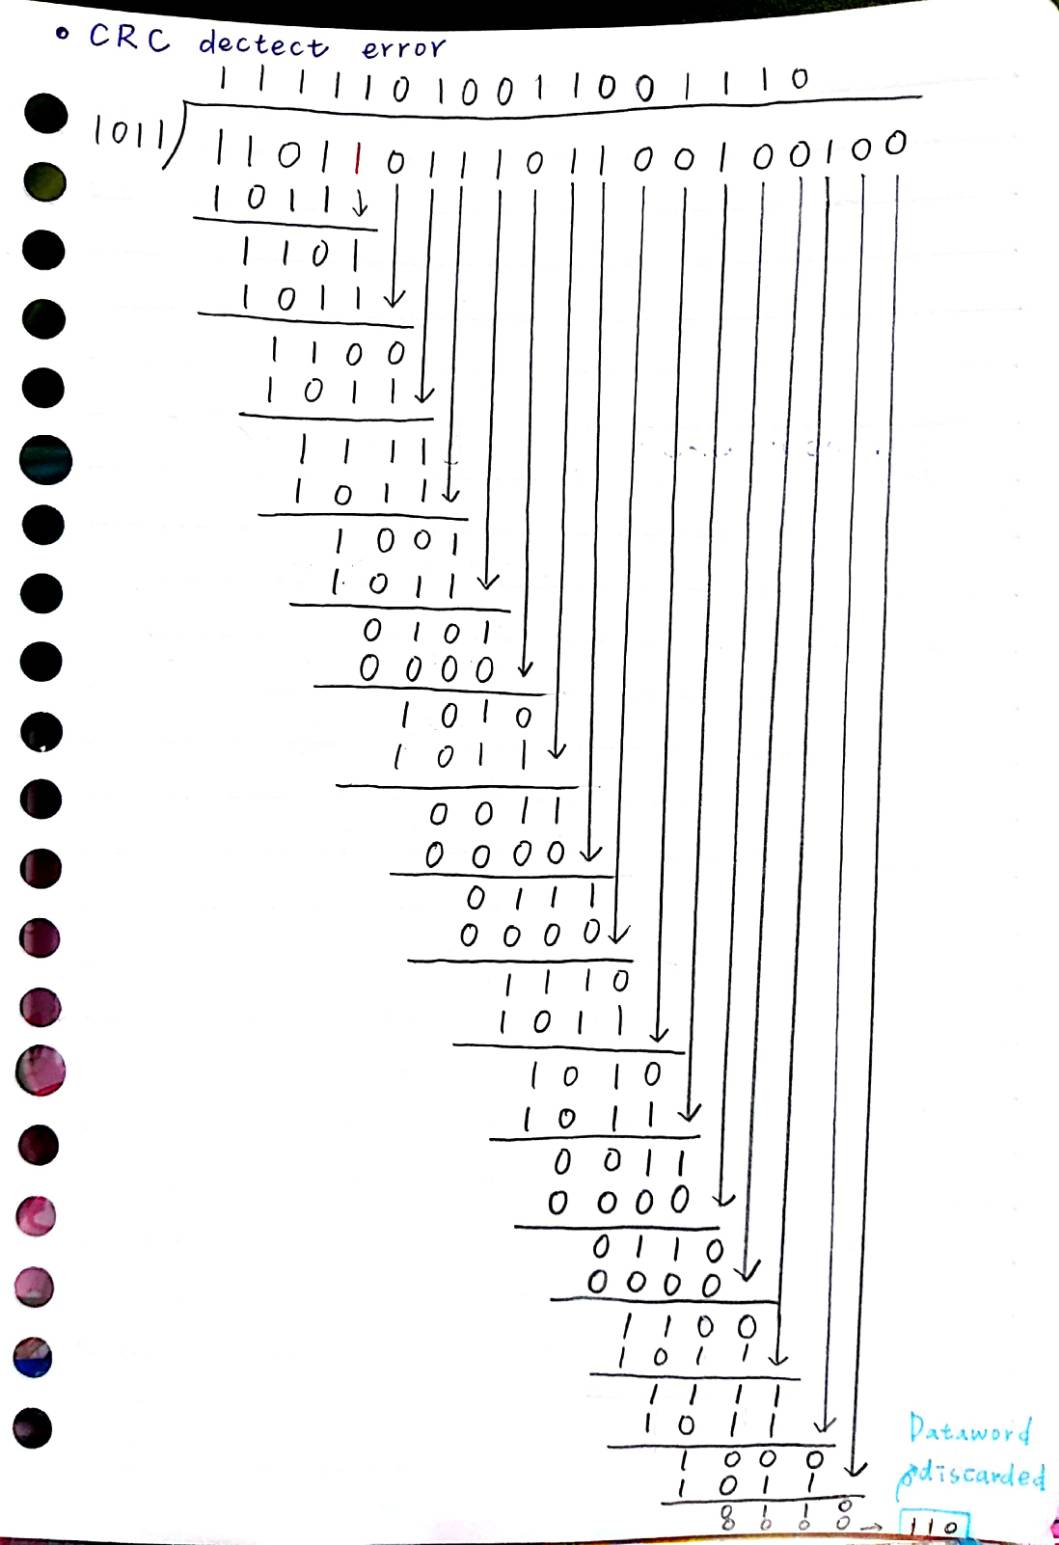 • CRC dectect error
1 1 1 1 1 0 1 0 0 1 1 0 0 1 1 1 0
1011) 1 1 0 1 1 0 1 1 1 0 1 1 0 0 1 0 0 1 0 0
1 0 1 1
1 1 0 1
1 0 1 1
1 1 0 0
1 0 1 1
1 1 1 1
1 0 1 1
1 0 0 1
1 0 1 1
0 1 0 1
0 0 0 0
1 0 1 0
1 0 1 1
0 0 1 1
0 0 0 0
0 1 1 1
0 0 0 0
1 1 1 0
1 0 1 1
1 0 1 0
1 0 1 1
0 0 1 1
0 0 0 0
0 1 1 0
0 0 0 0
1 1 0 0
1 0 1 1
1 1 1 1
1 0 1 1
1 0 0 0
1 0 1 1
Dataword
discarded
0 1 1 0
0 0 0 0 → 110